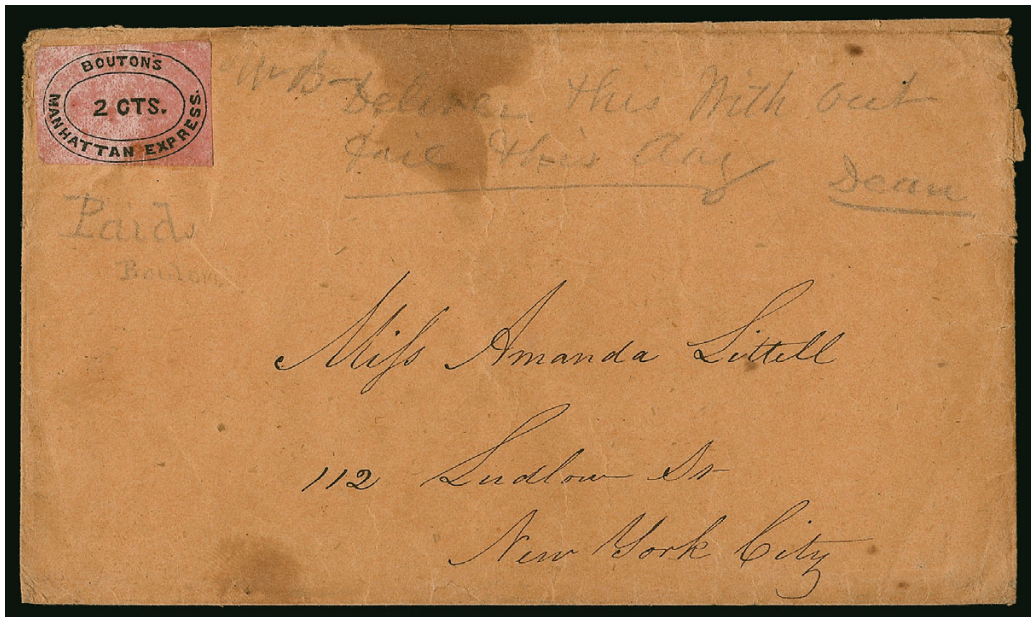 BOUTON'S
2 CTS.
MANHATTAN EXPRESS.
Deliver this With out
fail this day
Dean
Paid
Miss Amanda Littell
112 Ludlow St
New York City